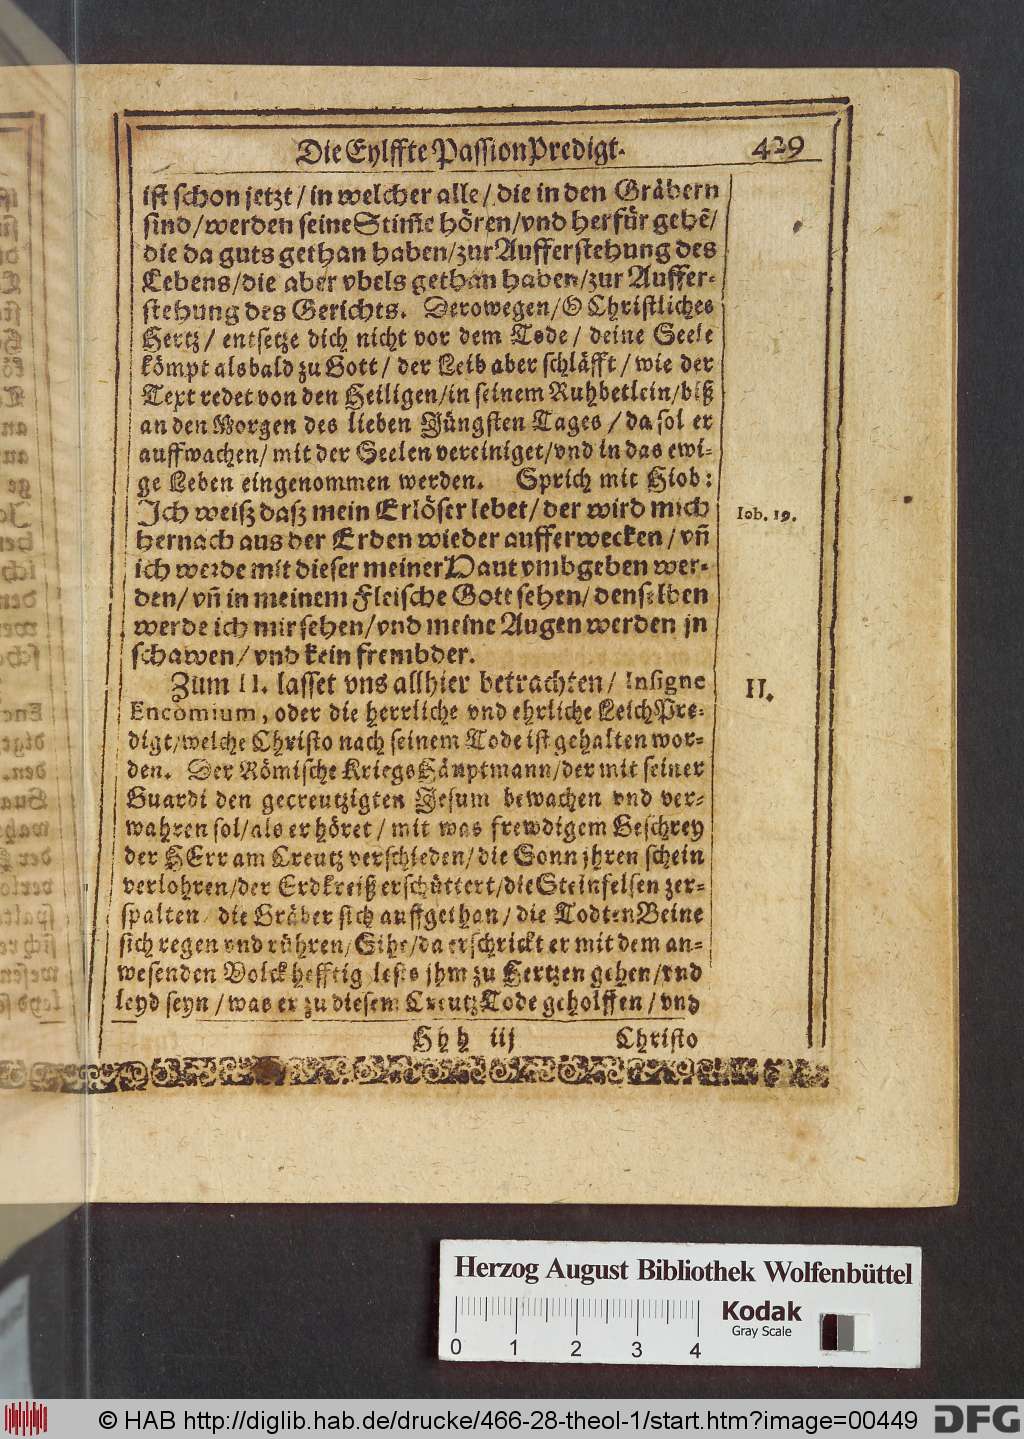 Die Eylffte PassionPredigt. 429
ist schon jetzt / in welcher alle / die in den Gräbern
sind / werden seine Stim̃e hören / vnd herfür gehẽ /
die da guts gethan haben / zur Aufferstehung des
Lebens / die aber vbels gethan haben / zur Auffer-
stehung des Gerichts. Derowegen / O Christliches
Hertz / entsetze dich nicht vor dem Tode / deine Seele
kömpt alsbald zu Gott / der Leib aber schläfft / wie der
Text redet von den Heiligen / in seinem Ruhbetlein / biß
an den Morgen des lieben Jüngsten Tages / da sol er
auffwachen / mit der Seelen vereiniget / vnd in das ewi-
ge Leben eingenommen werden. Sprich mit Hiob:
Ich weiß daß mein Erlöser lebet / der wird mich
hernach aus der Erden wieder aufferwecken / vñ
ich werde mit dieser meiner Haut vmbgeben wer-
den / vñ in meinem Fleische Gott sehen / denselben
werde ich mir sehen / vnd meine Augen werden jn
schawen / vnd kein frembder.
Iob. 19.
Zum II. lasset vns allhier betrachten / Insigne
II.
Encomium, oder die herrliche vnd ehrliche LeichPre-
digt / welche Christo nach seinem Tode ist gehalten wor-
den. Der Römische KriegsHäuptmann / der mit seiner
Guardi den gecreutzigten Jesum bewachen vnd ver-
wahren sol / als er höret / mit was frewdigem Geschrey
der HErr am Creutz verschieden / die Sonn jhren schein
verlohren / der Erdkreiß erschüttert / die Steinfelsen zer-
spalten / die Gräber sich auffgethan / die TodtenBeine
sich regen vnd rühren / Sihe / da erschrickt er mit dem an-
wesenden Volck hefftig / lests jhm zu Hertzen gehen / vnd
leyd seyn / was er zu diesem CreutzTode geholffen / vnd
Hhh iij Christo
Herzog August Bibliothek Wolfenbüttel
Kodak
Gray Scale
0 1 2 3 4
© HAB http://diglib.hab.de/drucke/466-28-theol-1/start.htm?image=00449
DFG